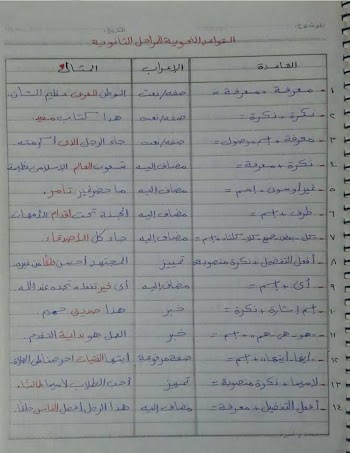 الموضوع: التاريخ:
القواعد النحوية للمراحل الثانوية
القاعدة الإعراب المثال
١- معرفة + معرفة = صفة/نعت الوطن العربي عظيم الشأن.
٢- نكرة + نكرة = صفة/نعت هذا كتاب مفيد
٣- معرفة + اسم موصول = صفة/نعت جاء الرجل الذي أكرمته
٤- نكرة + معرفة = مضاف إليه شعوب العالم الإسلامي عظيمة
٥- غير/سوى + اسم = مضاف إليه ما حضر غير تامر.
٦- ظرف + اسم = مضاف إليه الجنة تحت أقدام الأمهات
٧- كل - بعض - جميع - كلا - كلتا + اسم = مضاف إليه جاء كل الأصدقاء.
٨- أفعل التفضيل + نكرة منصوبة = تمييز المجتهد أحسن من غيره
٩- أي + اسم = مضاف إليه أي خير تفعله تجده عند الله.
١٠- اسم إشارة + نكرة = خبر هذا صديق مهم.
١١- هو - هي - هم + اسم = خبر العمل هو بداية التقدم.
١٢- أيها - أيتها + اسم = صفة مرفوعة أيتها الفتيات احرصن على
١٣- لاسيما + نكرة منصوبة = تمييز أحب الطلاب لاسيما طالبًا.
١٤- أفعل التفضيل + معرفة = مضاف إليه هذا الرجل أفضل الناس خلقًا.